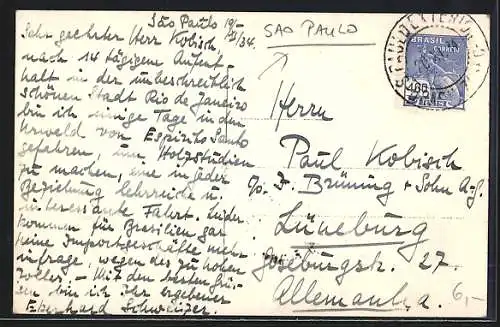 São Paulo 19/
XI/34.
Sehr geehrter Herr Kobisch,
nach 14 tägigem Aufent-
halt in der unbeschreiblich
schönen Stadt Rio de Janeiro
bin ich einige Tage in den
Urwald von Espirito Santo
gefahren, um Holzstudien
zu machen, eine in jeder
Beziehung lehrreiche u.
interessante Fahrt. Leider
kommen für Brasilien gar
keine Importgeschäfte mehr
infrage, wegen des zu hohen
Zolles. – Mit den besten Grü-
ssen bin ich Ihr ergebener
Eberhard Schweizer.
SAO PAULO
BRASIL
CORREIO
Herrn
Paul Kobisch
c/o. F. Brüning + Sohn A-G.
Lüneburg
Goseburgstr. 27.
Allemanha.
6,-